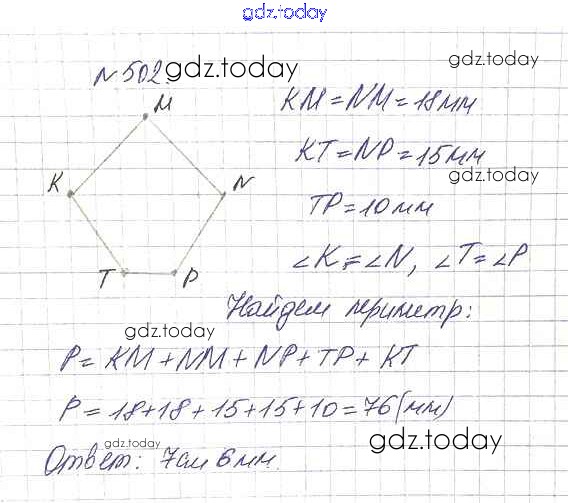 gdz.today
№502 gdz.today
gdz.today
M
KM = NM = 18 мм
KT = NP = 15 мм
gdz.today
K
N
TP = 10 мм
T
P
∠K = ∠N, ∠T = ∠P
Найдем периметр:
gdz.today
P = KM + NM + NP + TP + KT
P = 18 + 18 + 15 + 15 + 10 = 76 (мм)
gdz.today
gdz.today
Ответ: 7см 6мм.